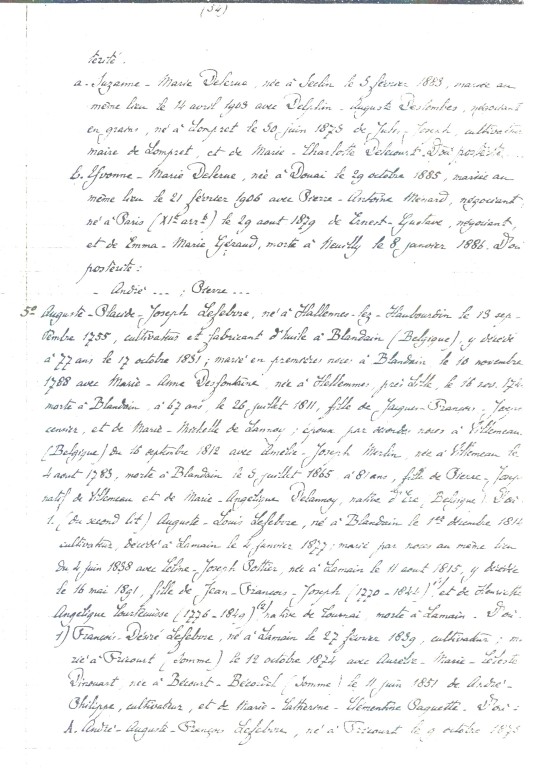 (34)
térité.
a. Suzanne-Marie Delerue, née à Seclin le 5 février 1883, mariée au
même lieu le 14 avril 1903 avec Delphin-Auguste Deslombes, négociant
en grains, né à Lompret le 30 juin 1873 de Jules-Joseph, cultivateur
maire de Lompret, et de Marie-Charlotte Delecourt. D'où postérité...
b. Yvonne-Marie Delerue, née à Douai le 29 octobre 1885, mariée au
même lieu le 21 février 1906 avec Pierre-Antoine Ménard, négociant,
né à Paris (XIe arrt) le 29 aout 1879 de Ernest-Gustave, négociant,
et de Emma-Marie Géraud, morte à Neuilly le 8 janvier 1886. D'où
postérité :
- André ... ; Pierre ...
5° Auguste-Claude-Joseph Lefebvre, né à Hallennes-lez-Haubourdin le 13 sep-
tembre 1755, cultivateur et fabricant d'huile à Blandain (Belgique), y décédé
à 77 ans le 17 octobre 1831 ; marié en premières noces à Blandain le 10 novembre
1788 avec Marie-Anne Desfontaine, née à Hellemmes, près Lille, le 16 nov. 174
morte à Blandain, à 67 ans, le 26 juillet 1811, fille de Jacques-François,
censier, et de Marie-Michelle de Lannoy ; épouse par secondes noces à Villemeau
(Belgique) du 16 septembre 1812 avec Amélie-Joseph Merlin, née à Villemeau le
4 aout 1783, morte à Blandain le 5 juillet 1865 à 81 ans, fille de Pierre-Josep
natif de Villemeau et de Marie-Angélique Delannoy, native d'Ere (Belgique). D'où :
1. (du second lit) Auguste-Louis Lefebvre, né à Blandain le 1er décembre 1814
cultivateur, décédé à Lamain le 4 janvier 1877 ; marié par noces au même lieu
du 4 juin 1838 avec Joseph Pottier, née à Lamain le 11 aout 1815, y décédée
le 16 mai 1891, fille de Jean-François-Joseph (1770-1844)(1) et de Henriette
Angélique (1776-1849)(2) native de Tournai, morte à Lamain. D'où :
1) François-Désiré Lefebvre, né à Lamain le 27 février 1839, cultivateur ; m-
rié à Fricourt (Somme) le 12 octobre 1874 avec Aurélie-Marie-Céleste
Dinouart, née à Bécourt-Bécordel (Somme) le 11 juin 1851 de André-
Philippe, cultivateur, et de Marie-Catherine-Clémentine Paquette. D'où :
A. André-Auguste-François Lefebvre, né à Fricourt le 9 octobre 1875